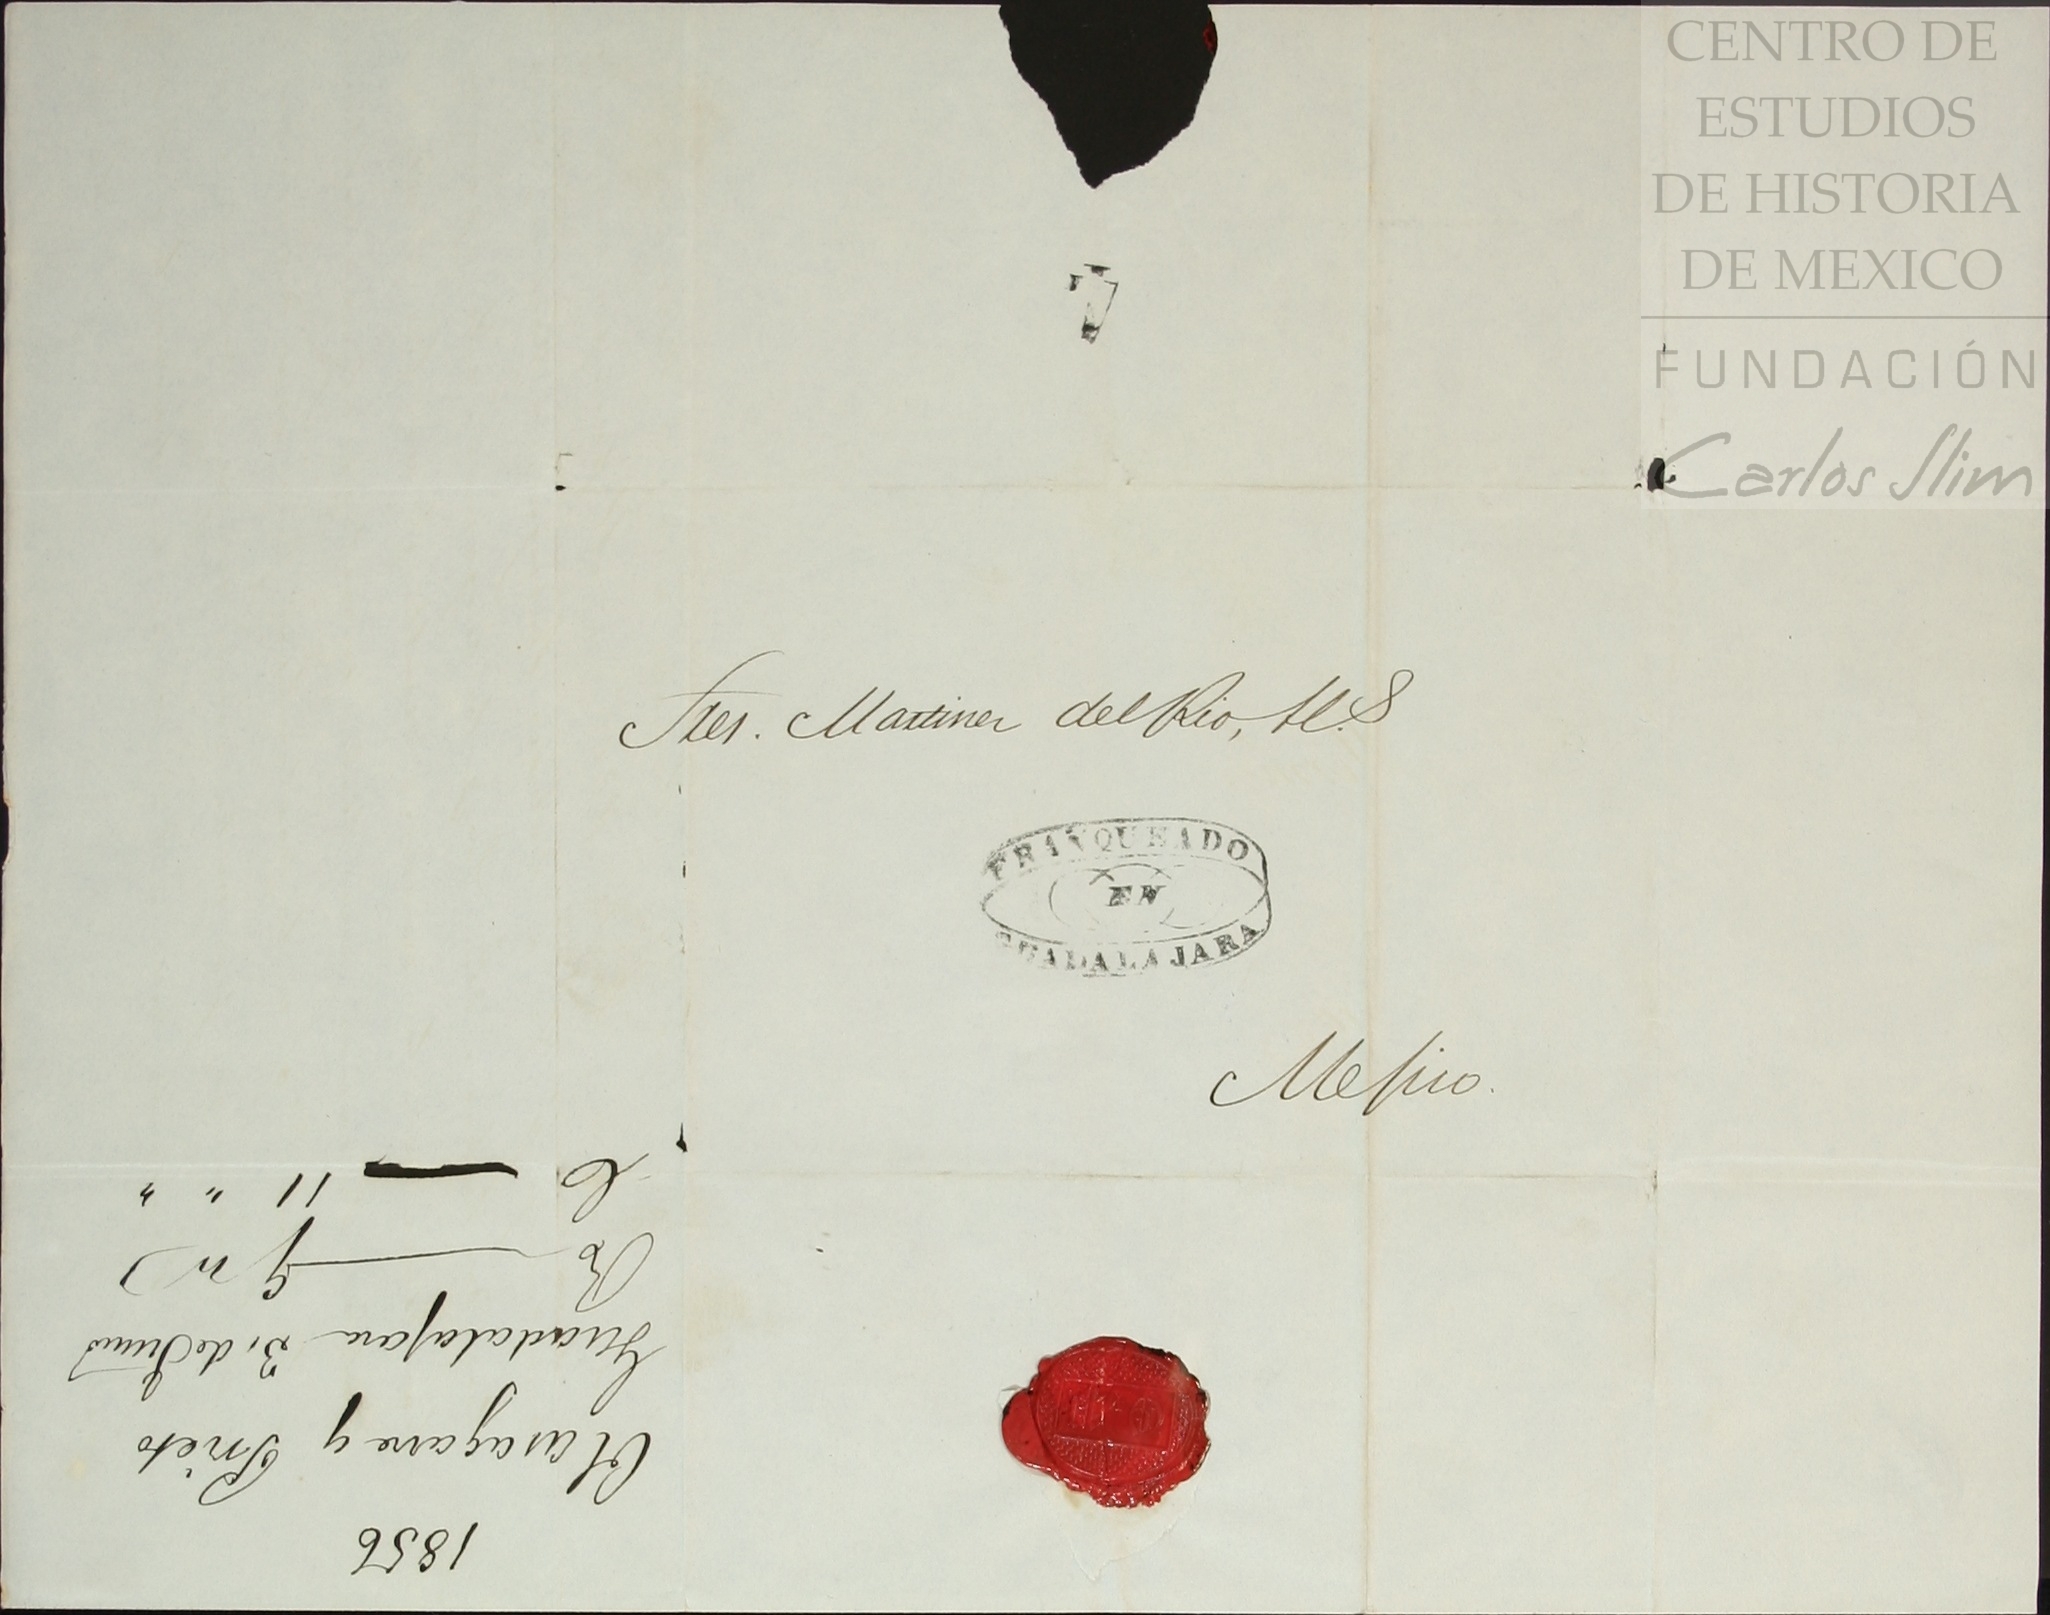 CENTRO DE
ESTUDIOS
DE HISTORIA
DE MEXICO
FUNDACIÓN
Carlos Slim
Sres. Martinez del Rio, H.S
FRANQUEADO
EN
GUADALAJARA
Mejico.
1856
Olasagarre y Prieto
Guadalajara 3, de Junio
R 9 "
C 11 " "